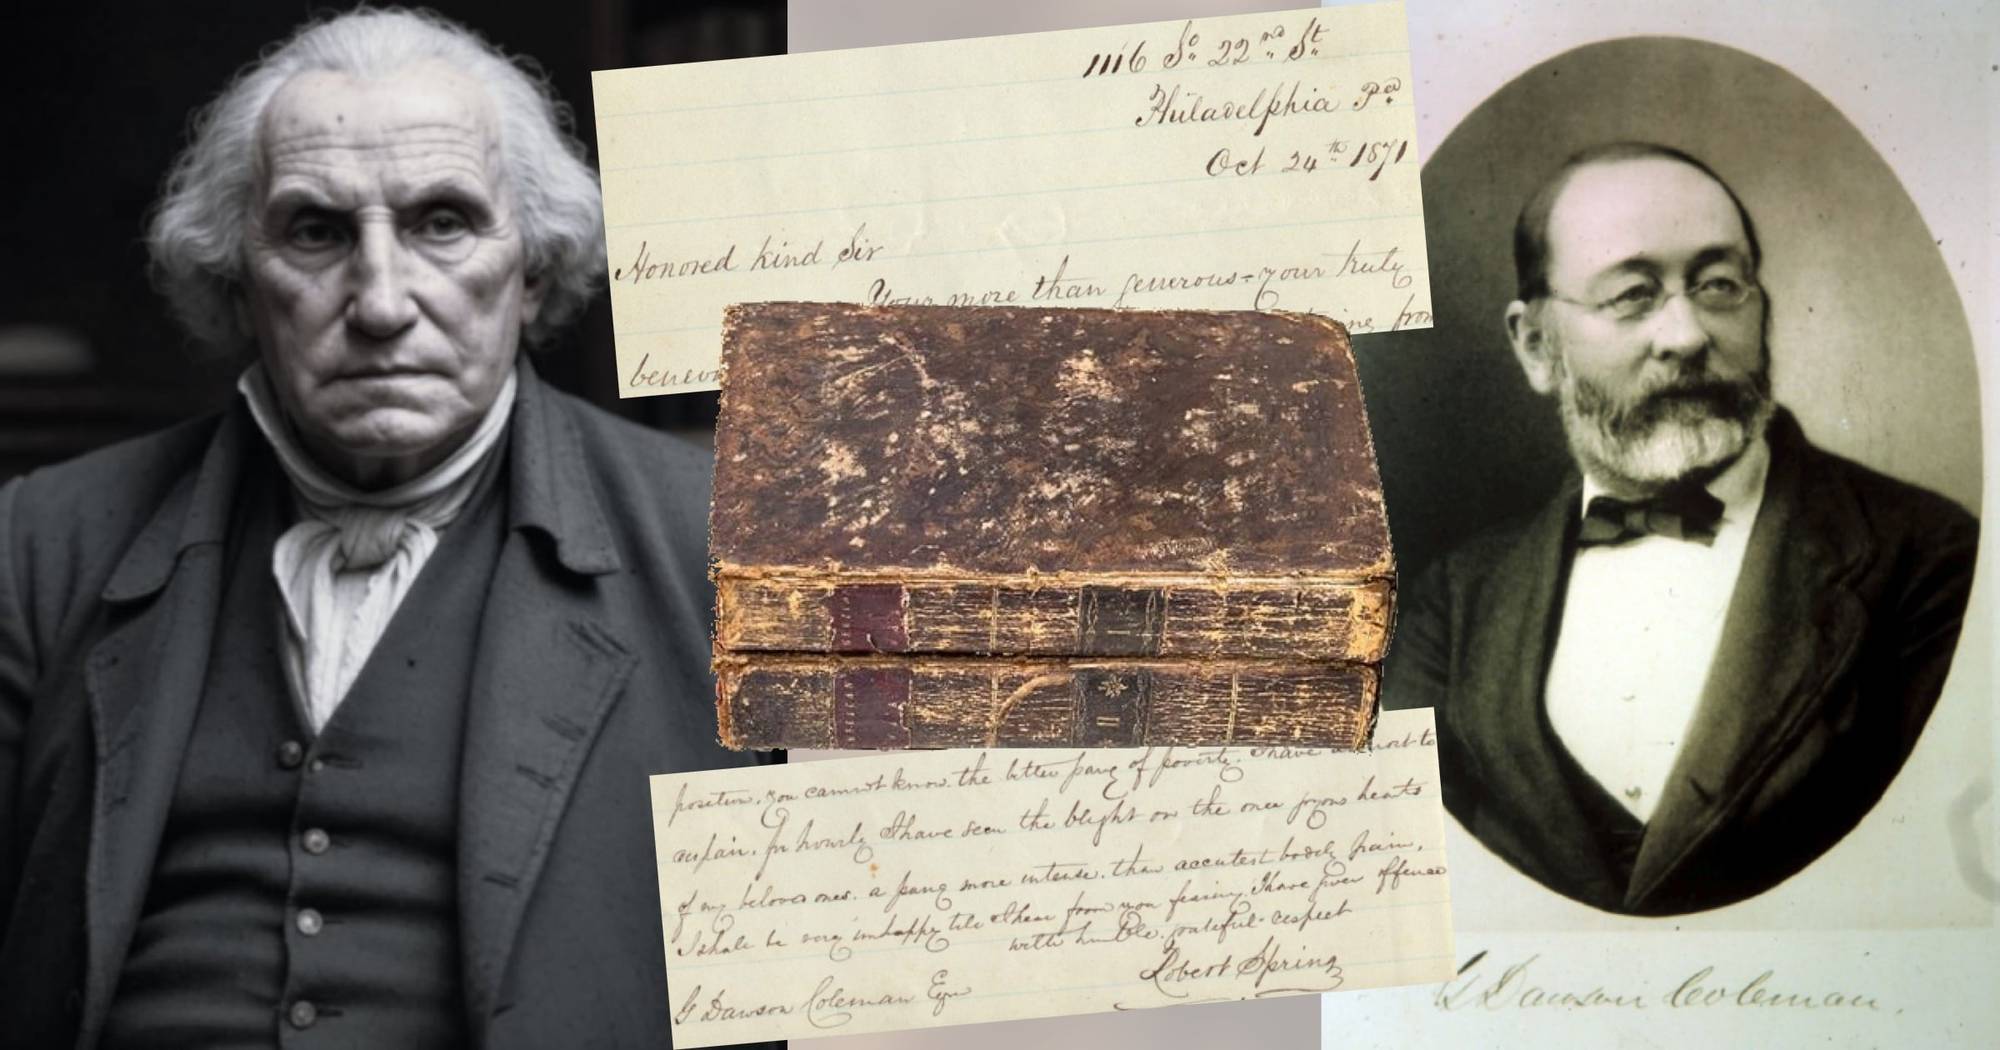 1116 So 22nd St
Philadelphia Pa
Oct 24th 1871
Honored kind Sir
Your more than generous - your truly
from
position. you cannot know. the bitter pang of poverty. I have
despair. for hourly I have seen the blight on the once joyous hearts
of my beloved ones. a pang more intense. than accutest bodily pain.
I shall be very unhappy till I hear from you fearing I have given offence
with humble. grateful. respect
Robert Spring
G Dawson Coleman Esqr
G Dawson Coleman.